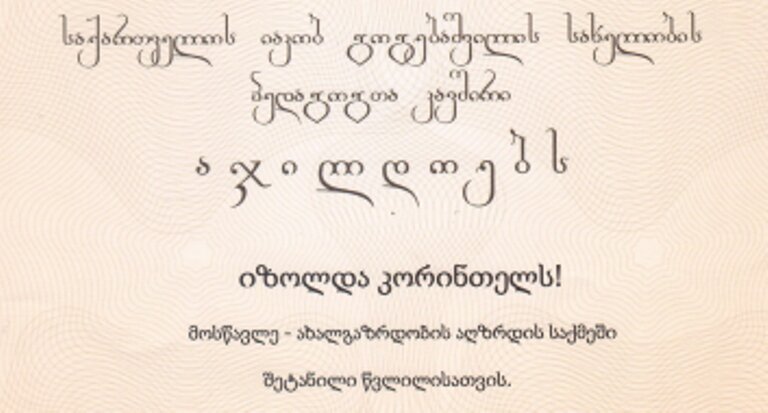 საქართველოს იაკობ გოგებაშვილის სახელობის
პედაგოგთა კავშირი
აჯილდოებს
იზოლდა კორინთელს!
მოსწავლე - ახალგაზრდობის აღზრდის საქმეში
შეტანილი წვლილისათვის.